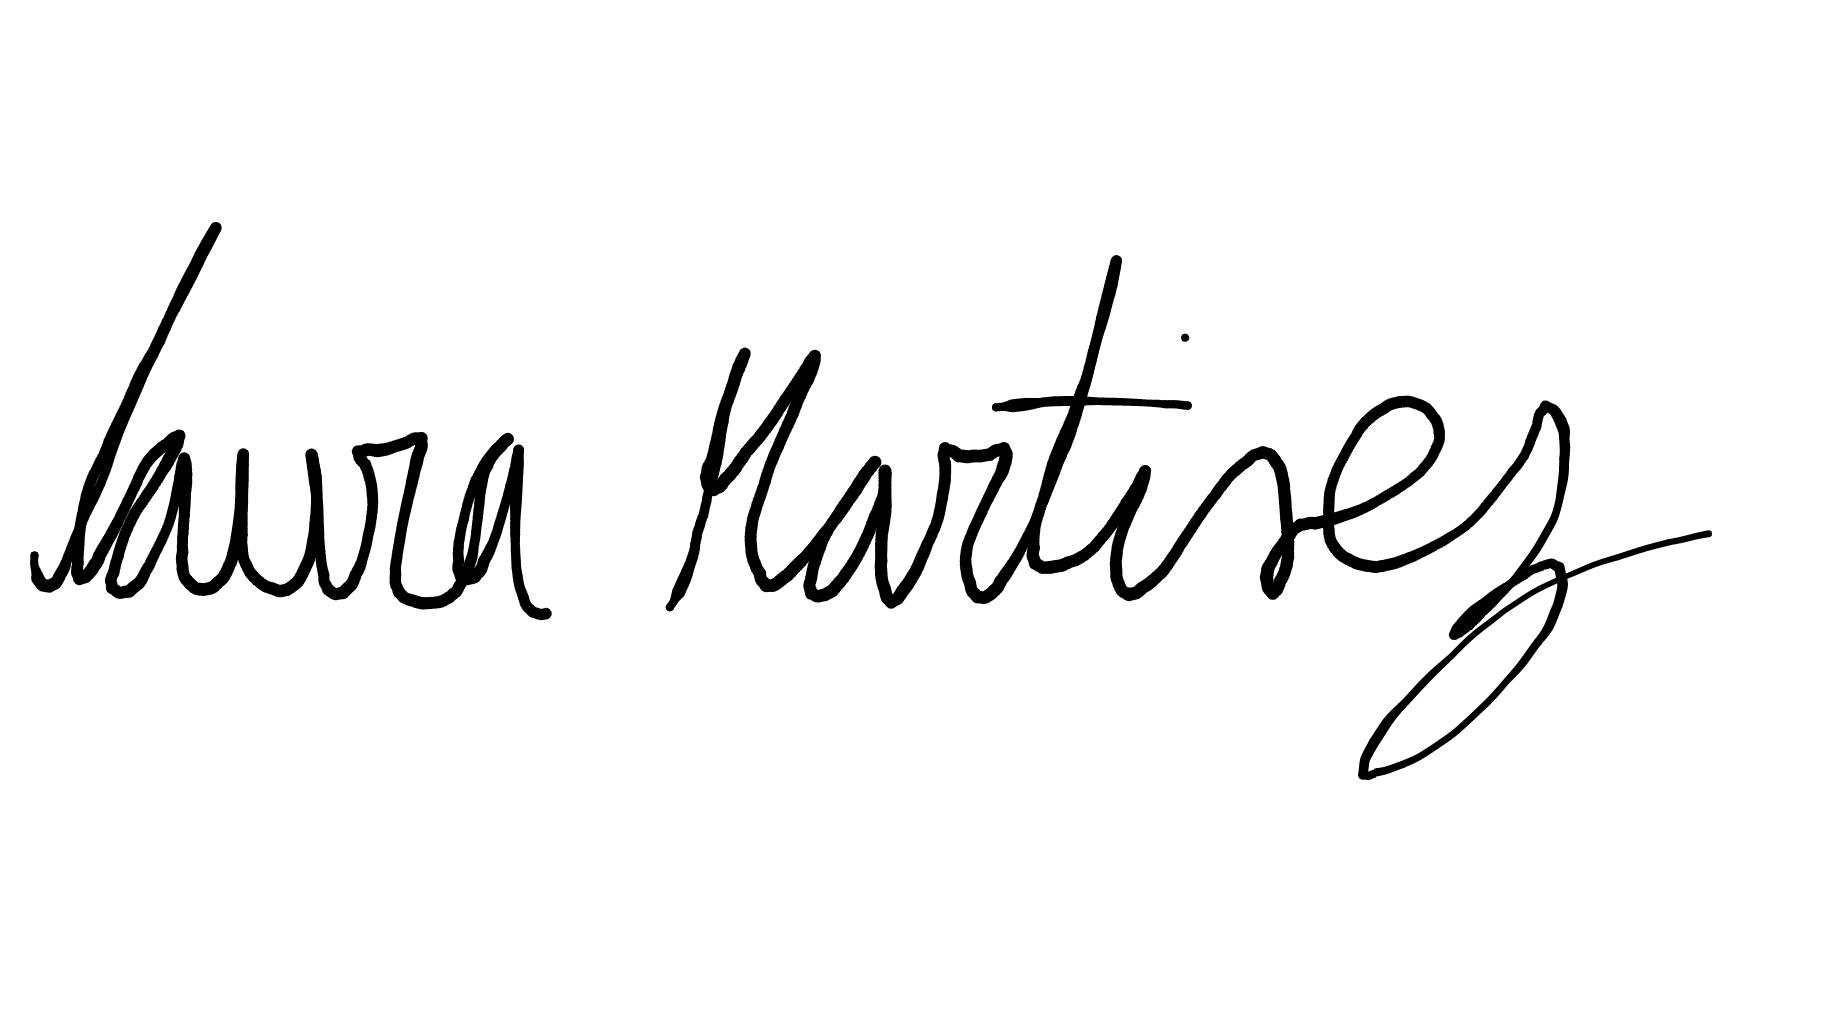 Laura Martinez